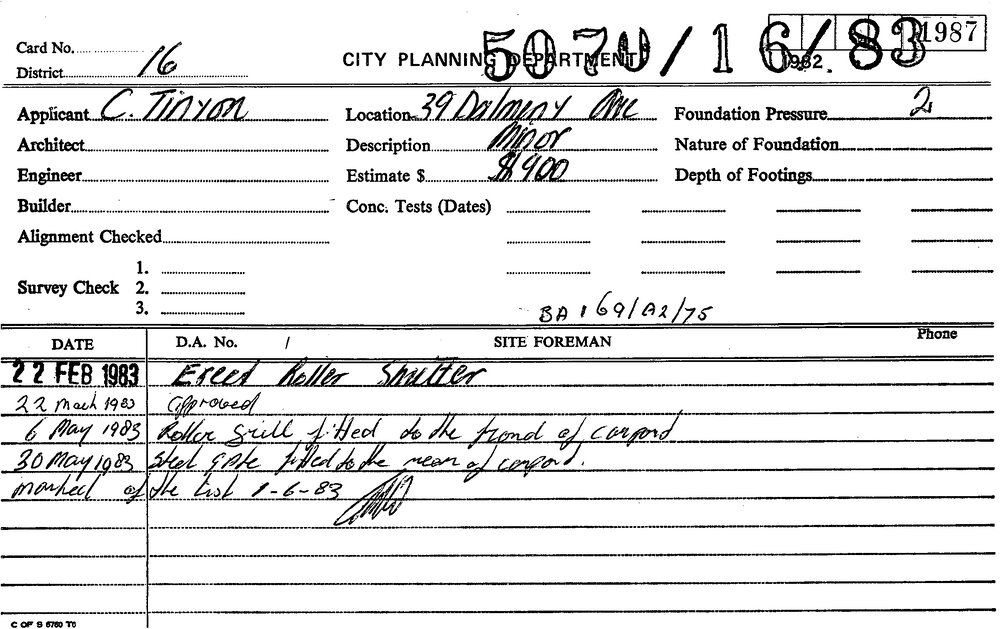 Card No.
District 16
CITY PLANNING DEPARTMENT
5070/16/83
1982.
1987
Applicant C. Tinyon
Location 39 Dalmeny Ave
Foundation Pressure 2
Architect
Description Minor
Nature of Foundation
Engineer
Estimate $ $900
Depth of Footings
Builder
Conc. Tests (Dates)
Alignment Checked
1.
Survey Check 2.
3.
BA 169/A2/75
DATE D.A. No. / SITE FOREMAN Phone
22 FEB 1983 Erect Roller Shutter
22 Mach 1983 approved
6 May 1983 Roller Grill fitted to the frond of carpord
30 May 1983 Steel gate fitted to the rear of carpord.
marked of the list 1-6-83
C OF S 6760 T6